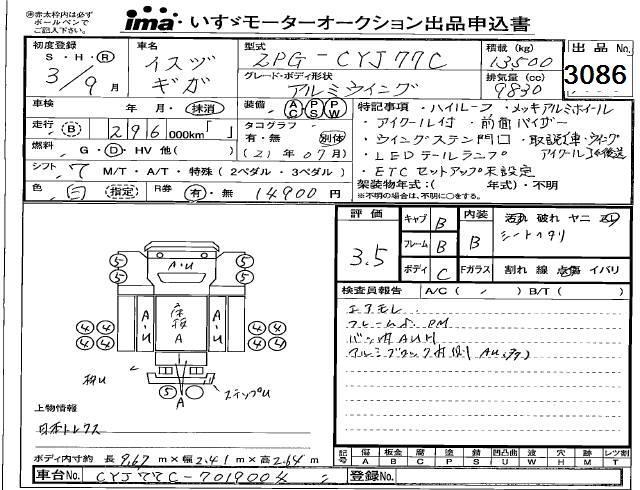 ※赤太枠内は必ずボールペンでご記入ください。
ima いすゞモーターオークション出品申込書
初度登録 S・H・R 3/9月
車名 イスヅ ギガ
型式 2PG-CYJ77C
グレード・ボディ形状 アルミウイング
積載(kg) 13500
排気量(cc) 9830
出品No. 3086
車検 年 月・抹消
装備 AC PS PW
走行 B 296 000km「 」
タコグラフ 有・無 別体 (21年07月)
燃料 G・D・HV 他( )
シフト 7 M/T・A/T・特殊(2ペダル・3ペダル)
色 指定 R券 有・無 14900円
特記事項・ハイルーフ・メッキアルミホイール
・アイクール付・前面バイザー
・ウイングステン門口・取説(車・ウイング
・LEDテールランプ アイクール)後送
・ETCセットアップ未設定
架装物年式:( 年式)・不明
※不明の場合は、不明に○をする。
評価 3.5
キャブ B
フレーム B
ボディ C
内装 B 汚れ 破れ ヤニ
シートヘタリ
Fガラス 割れ 線 点傷 イバリ
検査員報告 A/C( ) B/T( )
エアモレ
フレームS,PM
バッ内AUH
A・U
A・U
床板
A
A・U
5 5
5 5
4 4 4 4
4 4 4 4
5
A
ステップU
上物情報
日本トレクス
ボディ内寸約 長9.67m×幅2.41m×高2.64m
車台No. CYJ77C-7019004
登録No.
記号 傷A 板金B 腐C 塗P 錆S 凹U 凸凹曲X 波W 穴H 跡M ガラスT